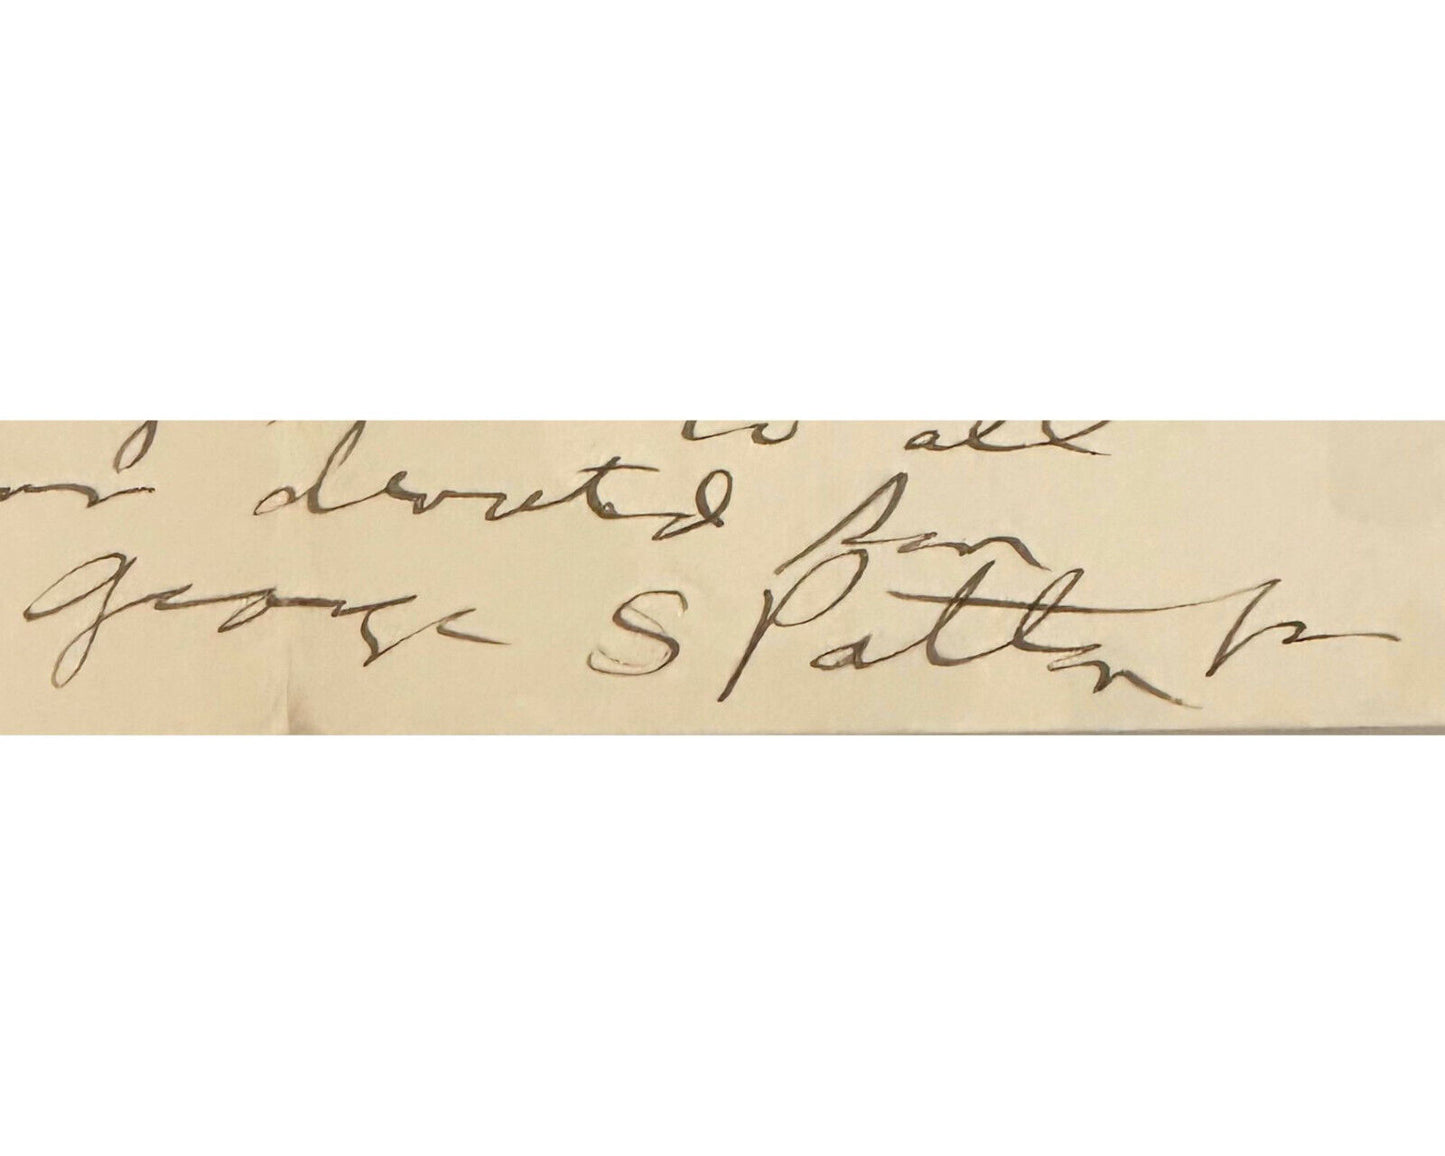 to all
devoted
George S Patton Jr